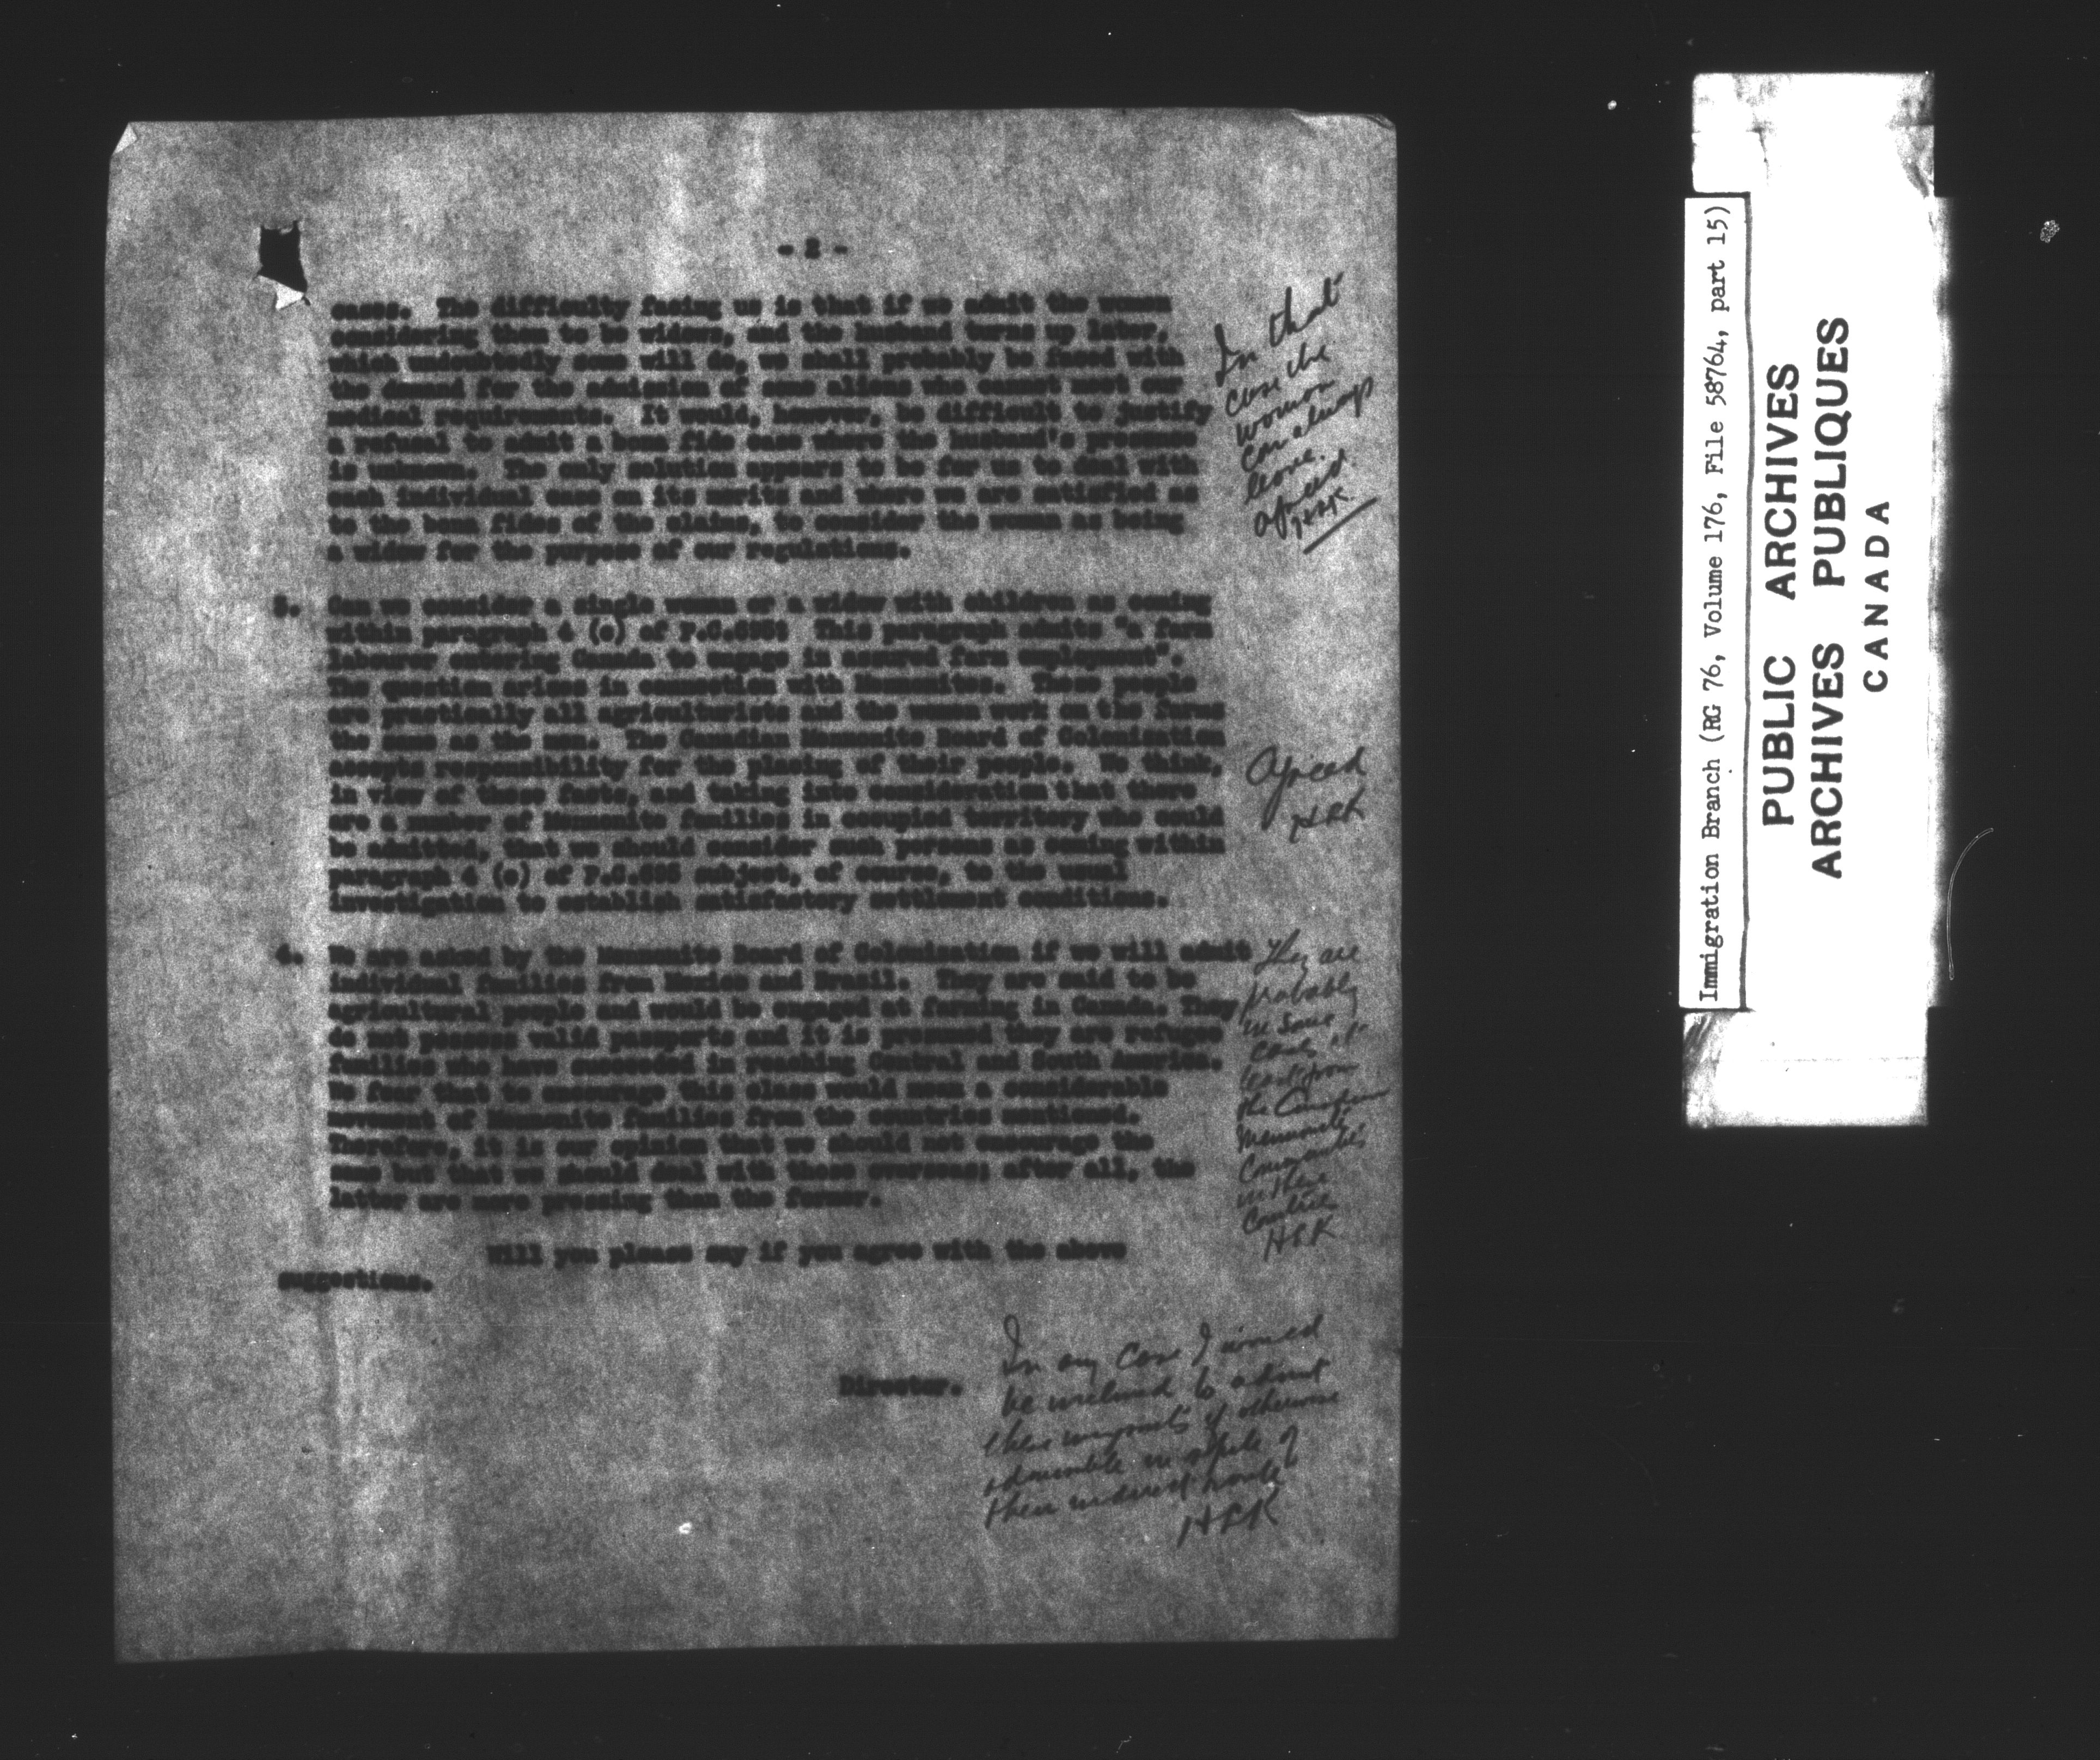 - 2 -
cases. The difficulty facing us is that if we admit the women
considering them to be widows, and the husband turns up later,
which undoubtedly some will do, we shall probably be faced with
the demand for the admission of some aliens who cannot meet our
medical requirements. It would, however, be difficult to justify
a refusal to admit a bona fide case where the husband's presence
is unknown. The only solution appears to be for us to deal with
each individual case on its merits and where we are satisfied as
to the bona fides of the claims, to consider the woman as being
a widow for the purpose of our regulations.
In that
case the
woman
can always
leave.
Agreed
HLK
3. Can we consider a single woman or a widow with children as coming
within paragraph 4 (c) of P.C.695? This paragraph admits "a farm
labourer entering Canada to engage in assured farm employment".
The question arises in connection with Mennonites. These people
are practically all agriculturists and the women work on the farms
the same as the men. The Canadian Mennonite Board of Colonization
accepts responsibility for the placing of their people. We think,
in view of these facts, and taking into consideration that there
are a number of Mennonite families in occupied territory who could
be admitted, that we should consider such persons as coming within
paragraph 4 (c) of P.C.695 subject, of course, to the usual
investigation to establish satisfactory settlement conditions.
Agreed
HLK
4. We are asked by the Mennonite Board of Colonization if we will admit
individual families from Mexico and Brazil. They are said to be
agricultural people and would be engaged at farming in Canada. They
do not possess valid passports and it is presumed they are refugee
families who have succeeded in reaching Central and South America.
We fear that to encourage this class would mean a considerable
movement of Mennonite families from the countries mentioned.
Therefore, it is our opinion that we should not encourage the
same but that we should deal with those overseas; after all, the
latter are more pressing than the former.
They are
probably
in some
cases at
least from
the Canadian
Mennonite
Communities
in these
Countries
HLK
Will you please say if you agree with the above
suggestions.
Director.
In any case I would
be inclined to admit
these migrants if otherwise
admissible in spite of
their indirect route
HLK
Immigration Branch (RG 76, Volume 176, File 58764, part 15)
PUBLIC ARCHIVES
ARCHIVES PUBLIQUES
CANADA